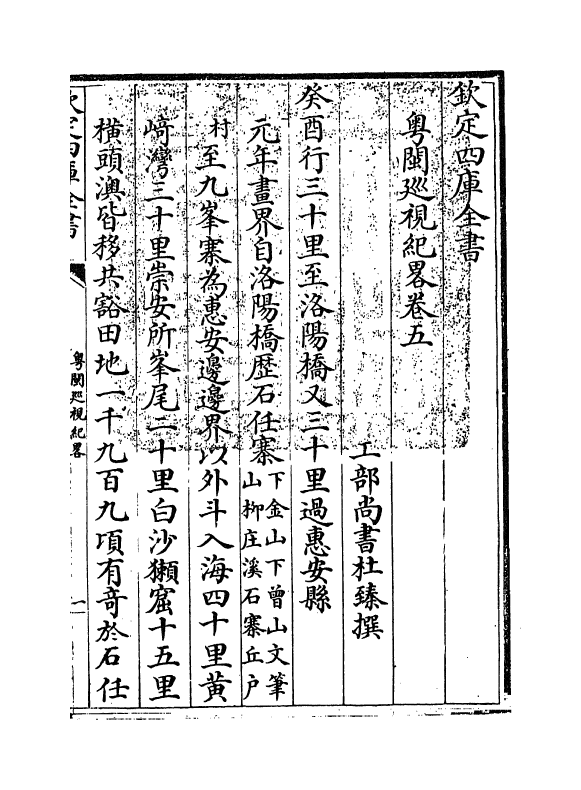 欽定四庫全書
粤閩廵視紀畧卷五
工部尚書杜臻撰
癸酉行三十里至洛陽橋又三十里過惠安縣
元年畫界自洛陽橋歴石任寨下金山下曾山文筆山柳庄溪石寨丘户
村至九峯寨為惠安邊邊界以外斗入海四十里黄
﨑灣三十里崇安所峯尾二十里白沙獺窟十五里
横頭澳皆移共豁田地一千九百九頃有竒於石任
欽定四庫全書
粤閩廵視紀畧
一